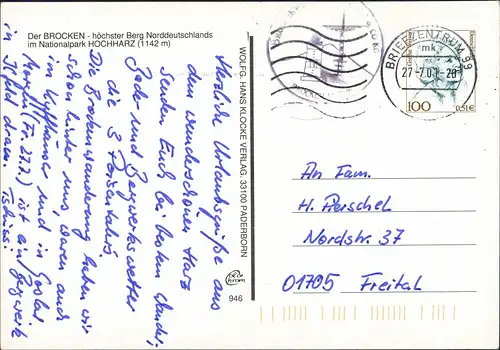 Der BROCKEN - höchster Berg Norddeutschlands
im Nationalpark HOCHHARZ (1142 m)
Herzliche Urlaubsgrüße aus
dem wunderschönen Harz
senden Euch bei bestem Wander-,
Bade- und Bergwerkswetter
die 3 Persentahrs.
Die Brockenwanderung haben wir
schon hinter uns, waren auch
im Kyffhäuser und in Goslar.
Morgen (Fr. 27.7.) ist ein Bergwerk
in Ilfeld dran. Tschüß!
WOLFG. HANS KLOCKE VERLAG, 33100 PADERBORN
946
BRIEFZENTRUM 99
mk
27.-7.01-20
100
0,51€
An Fam.
H. Herschel
Nordstr. 37
01705 Freital